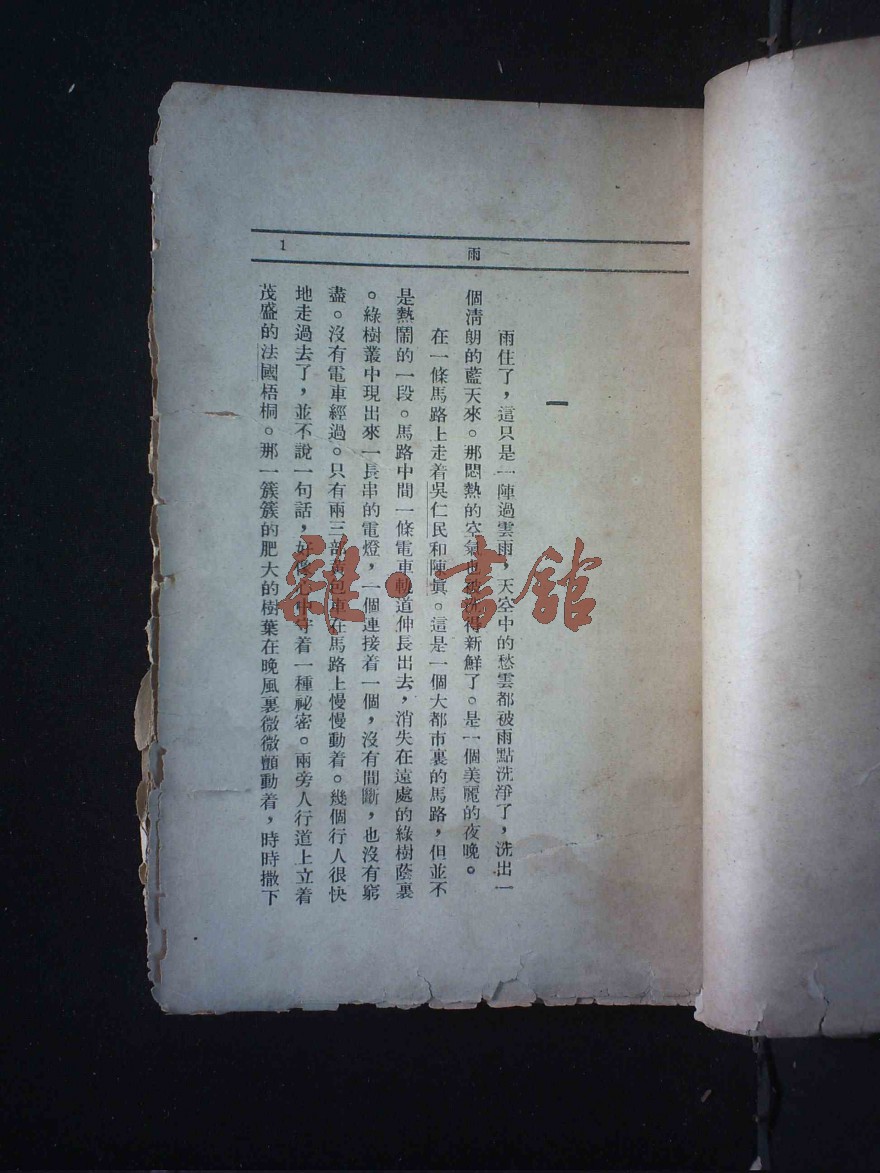 雨
1
一
雨住了，這只是一陣過雲雨，天空中的愁雲都被雨點洗淨了，洗出一
個清朗的藍天來。那悶熱的空氣也被洗得新鮮了。是一個美麗的夜晚。
在一條馬路上走着吳仁民和陳真。這是一個大都市裏的馬路，但並不
是熱鬧的一段。馬路中間一條電車軌道伸長出去，消失在遠處的綠樹蔭裏
。綠樹叢中現出來一長串的電燈，一個連接着一個，沒有間斷，也沒有窮
盡。沒有電車經過。只有兩三部黃包車在馬路上慢慢動着。幾個行人很快
地走過去了，並不說一句話，好像心中守着一種祕密。兩旁人行道上立着
茂盛的法國梧桐。那一簇簇的肥大的樹葉在晚風裏微微顫動着，時時撒下
雜·書館